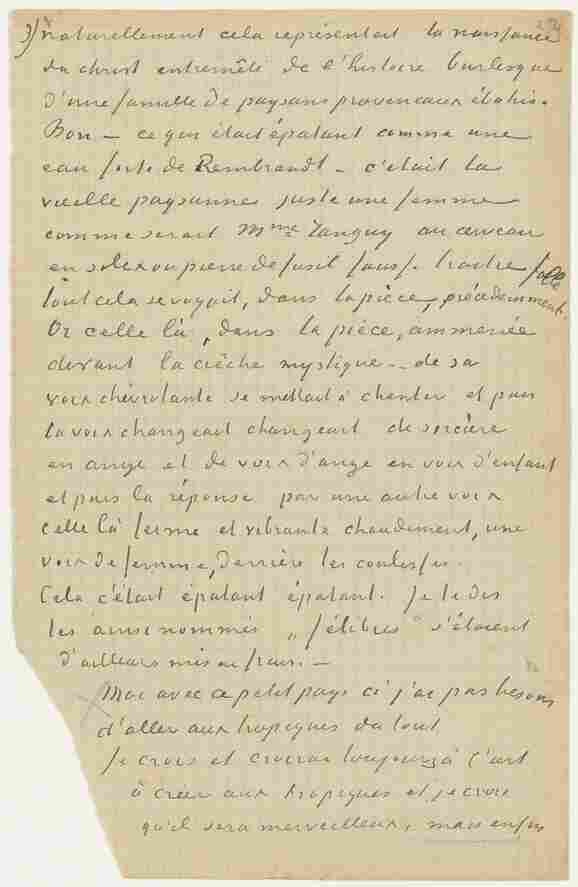 naturellement cela représentait la naissance
du christ entremêlé de l'histoire burlesque
d'une famille de paysans provencaux ébahis.
Bon – ce qui était épatant comme une
eau forte de Rembrandt – c'était la
vieille paysanne juste une femme
comme serait Mme Tanguy au cerveau
en silex ou pierre de fusil fausse traitre folle
tout cela se voyait, dans la pièce, précédemment.
Or celle là, dans la pièce, ammenée
devant la crèche mystique – de sa
voix chevrotante se mettait à chanter et puis
la voix changeait changeait de sorcière
en ange et de voix d'ange en voix d'enfant
et puis la réponse par une autre voix
celle là ferme et vibrante chaudement, une
voix de femme, derrière les coulisses.
Cela c'était épatant épatant. Je te dis
les ainsi nommés „félibres" s'étaient
d'ailleurs mis en frais. –
Moi avec ce petit pays ci j'ai pas besoin
d'aller aux tropiques du tout.
Je crois et croirai toujours à l'art
à créer aux tropiques et je crois
qu'il sera merveilleux, mais enfin